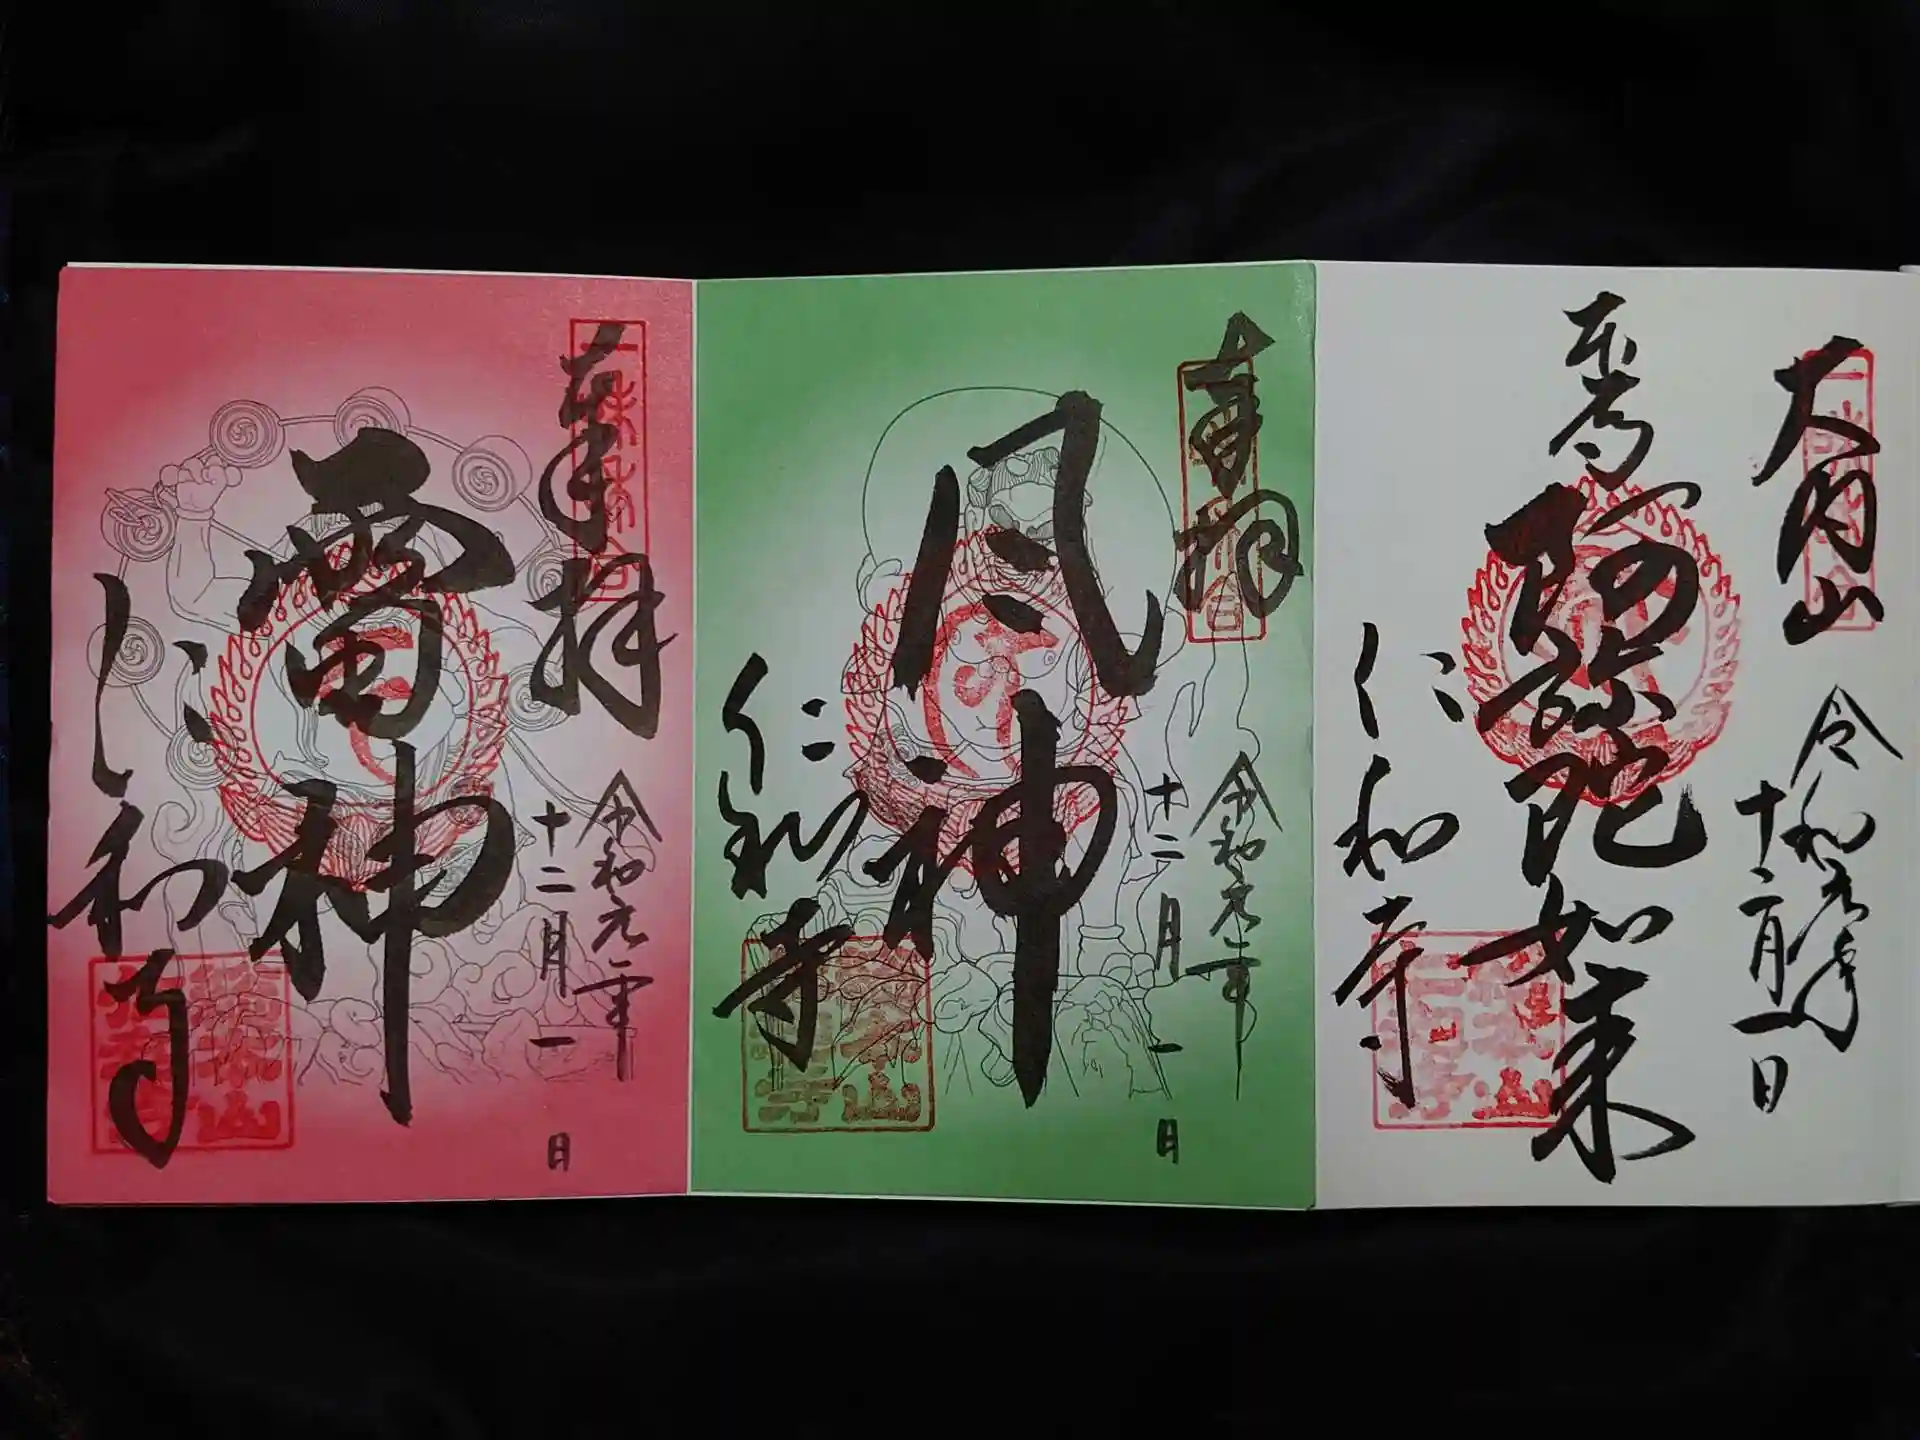 大内山
令和元年
十二月一日
奉拝
阿弥陀如来
仁和寺
奉拝
令和元年
十二月一日
風神
仁和寺
奉拝
令和元年
十二月一日
雷神
仁和寺